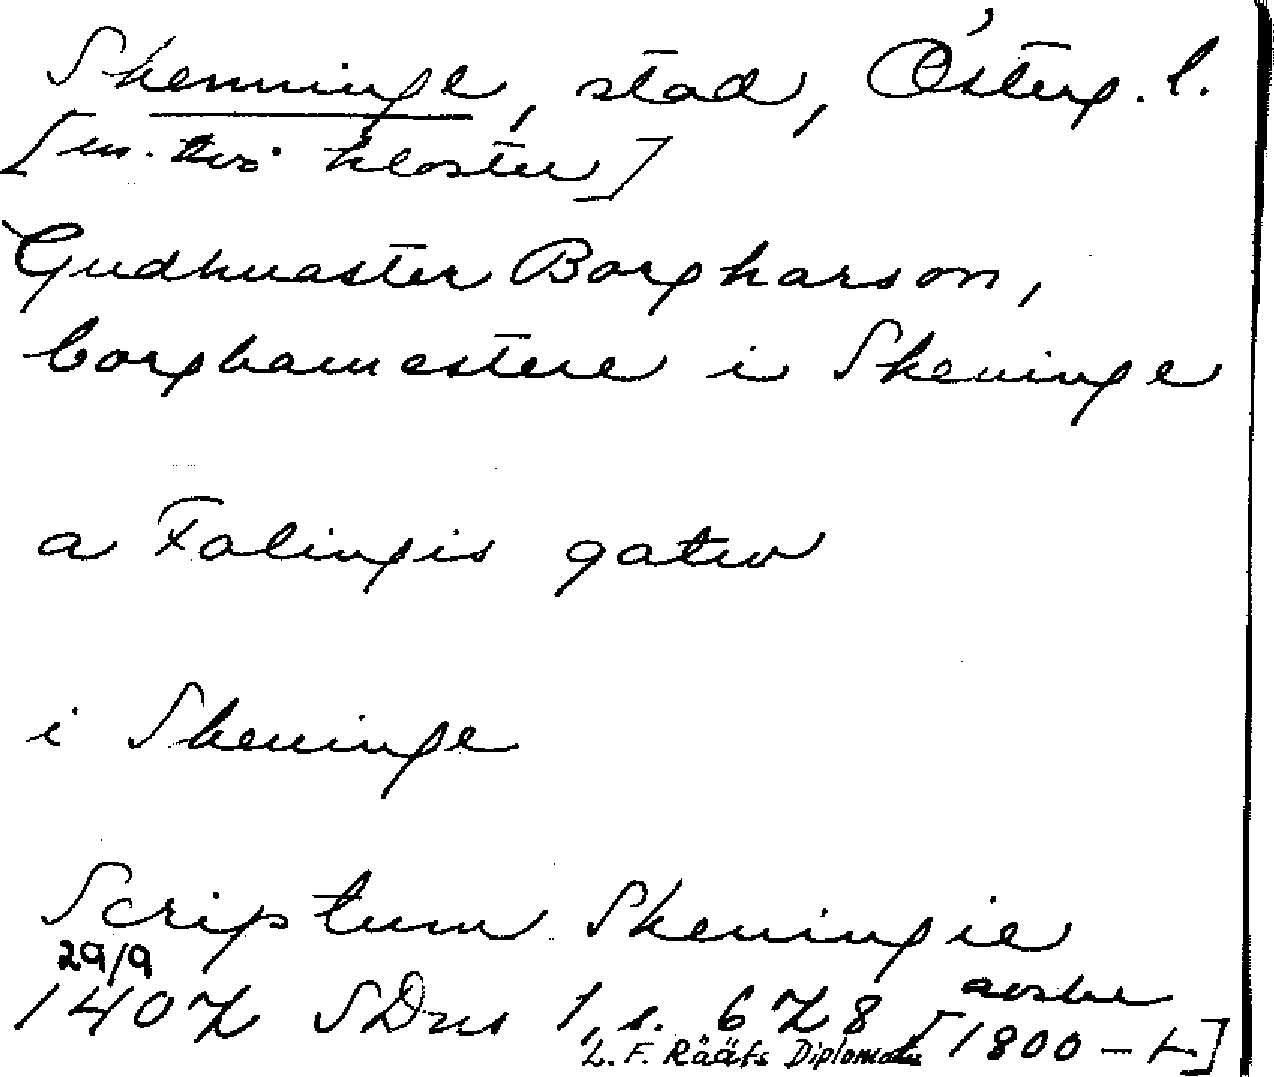 Skenninge, stad, Österg. l.
[m. två kloster]
Gudhuaster Borgharson,
borghamestere i Skeninge
a Falingis gatw
i Skeninge
Scriptum Skeningie
29/9
1407 SDns 1, s. 678 [avskr
L. F. Rääfs Diplomata 1800-t.]